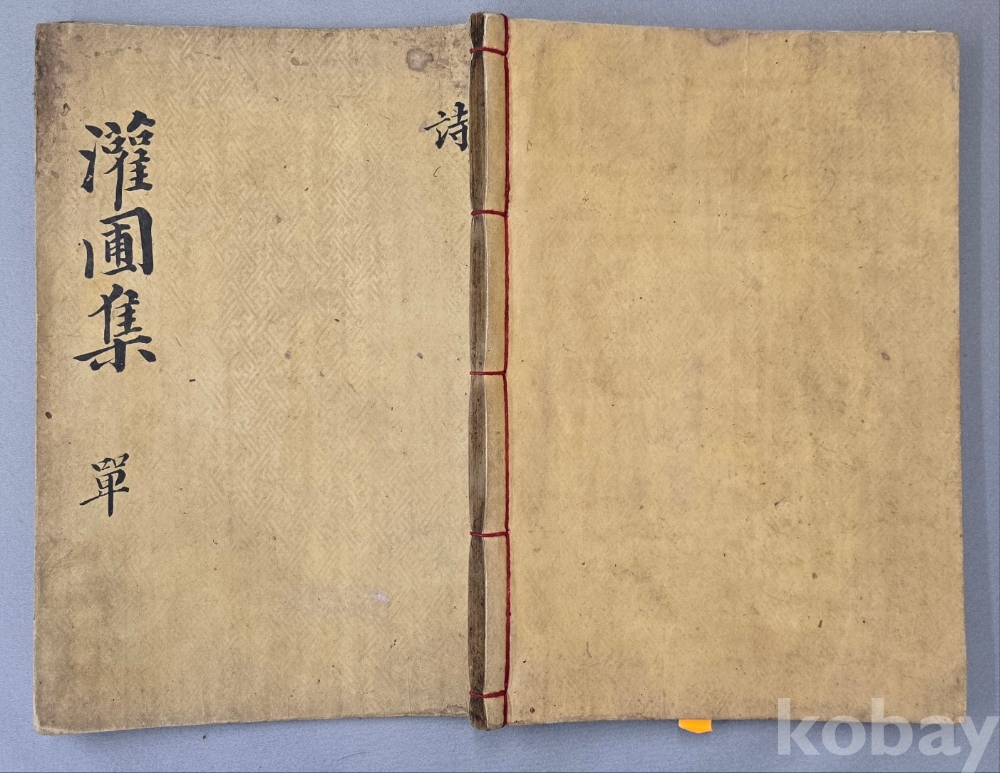 灌圃集 單
詩
kobay